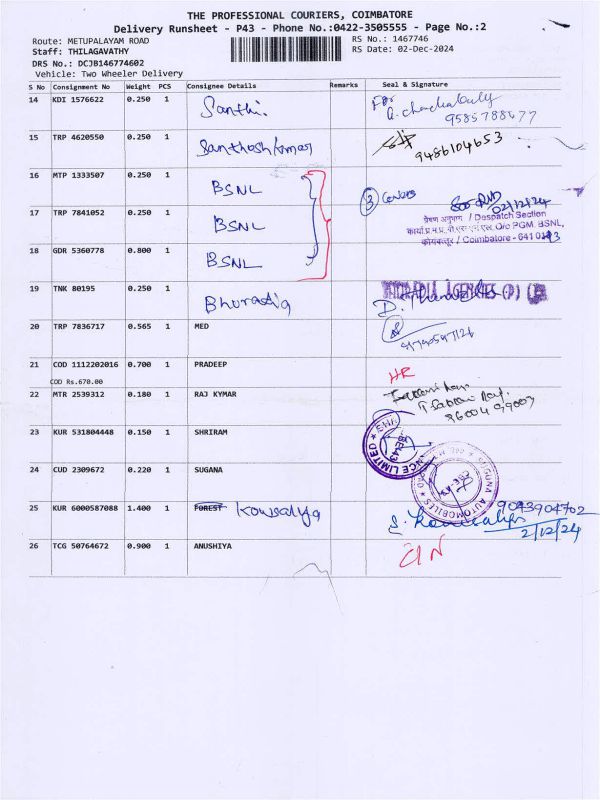 THE PROFESSIONAL COURIERS, COIMBATORE
Delivery Runsheet - P43 - Phone No.:0422-3505555 - Page No.:2
Route: METUPALAYAM ROAD RS No.: 1467746
Staff: THILAGAVATHY RS Date: 02-Dec-2024
DRS No.: DCJB146774602
Vehicle: Two Wheeler Delivery
S No Consignment No Weight PCS Consignee Details Remarks Seal & Signature
14 KDI 1576622 0.250 1 Santhi. For
9585788677
15 TRP 4620550 0.250 1 Santhosh kumar
9486104653
16 MTP 1333507 0.250 1 BSNL 3 Covers
02/12/24
17 TRP 7841052 0.250 1 BSNL
प्रेषण अनुभाग / Despatch Section
O/o PGM, BSNL,
कोयंबत्तूर / Coimbatore - 641 043
18 GDR 5360778 0.800 1 BSNL
19 TNK 80195 0.250 1 AGENCIES (P)
20 TRP 7836717 0.565 1 MED
21 COD 1112202016 0.700 1 PRADEEP HR
COD Rs.670.00
22 MTR 2539312 0.180 1 RAJ KYMAR
23 KUR 531804448 0.150 1 SHRIRAM
LIMITED
24 CUD 2309672 0.220 1 SUGANA
SUGUNA AUTOMOBILES
CBE-43
25 KUR 6000587088 1.400 1 FOREST Kowsalya 9043904702
2/12/24
26 TCG 50764672 0.900 1 ANUSHIYA